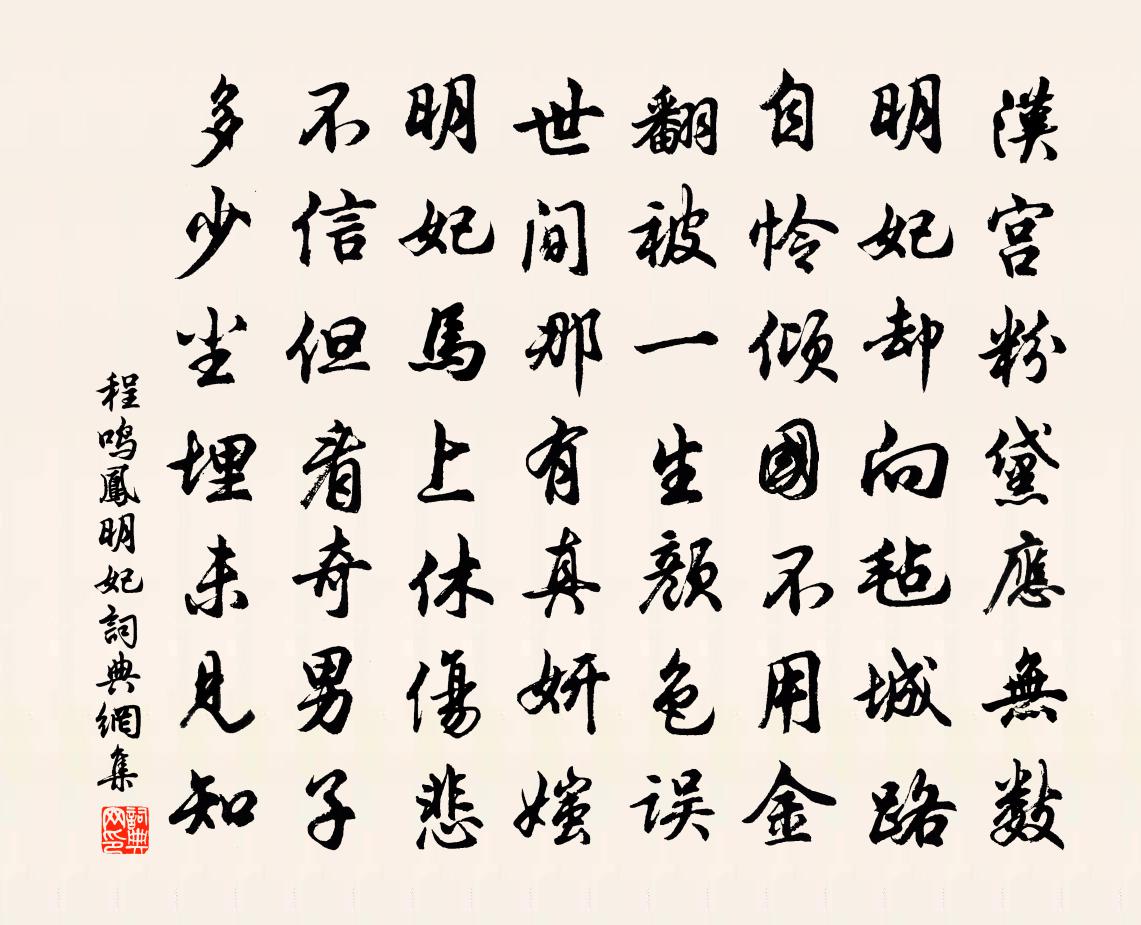 漢宫粉黛應無數
明妃却向毡城路
自怜傾國不用金
翻被一生顔色误
世间那有真妍媸
明妃馬上休傷悲
不信但看奇男子
多少尘埋未見知
程鸣鳳明妃詞典網集
詞典网印